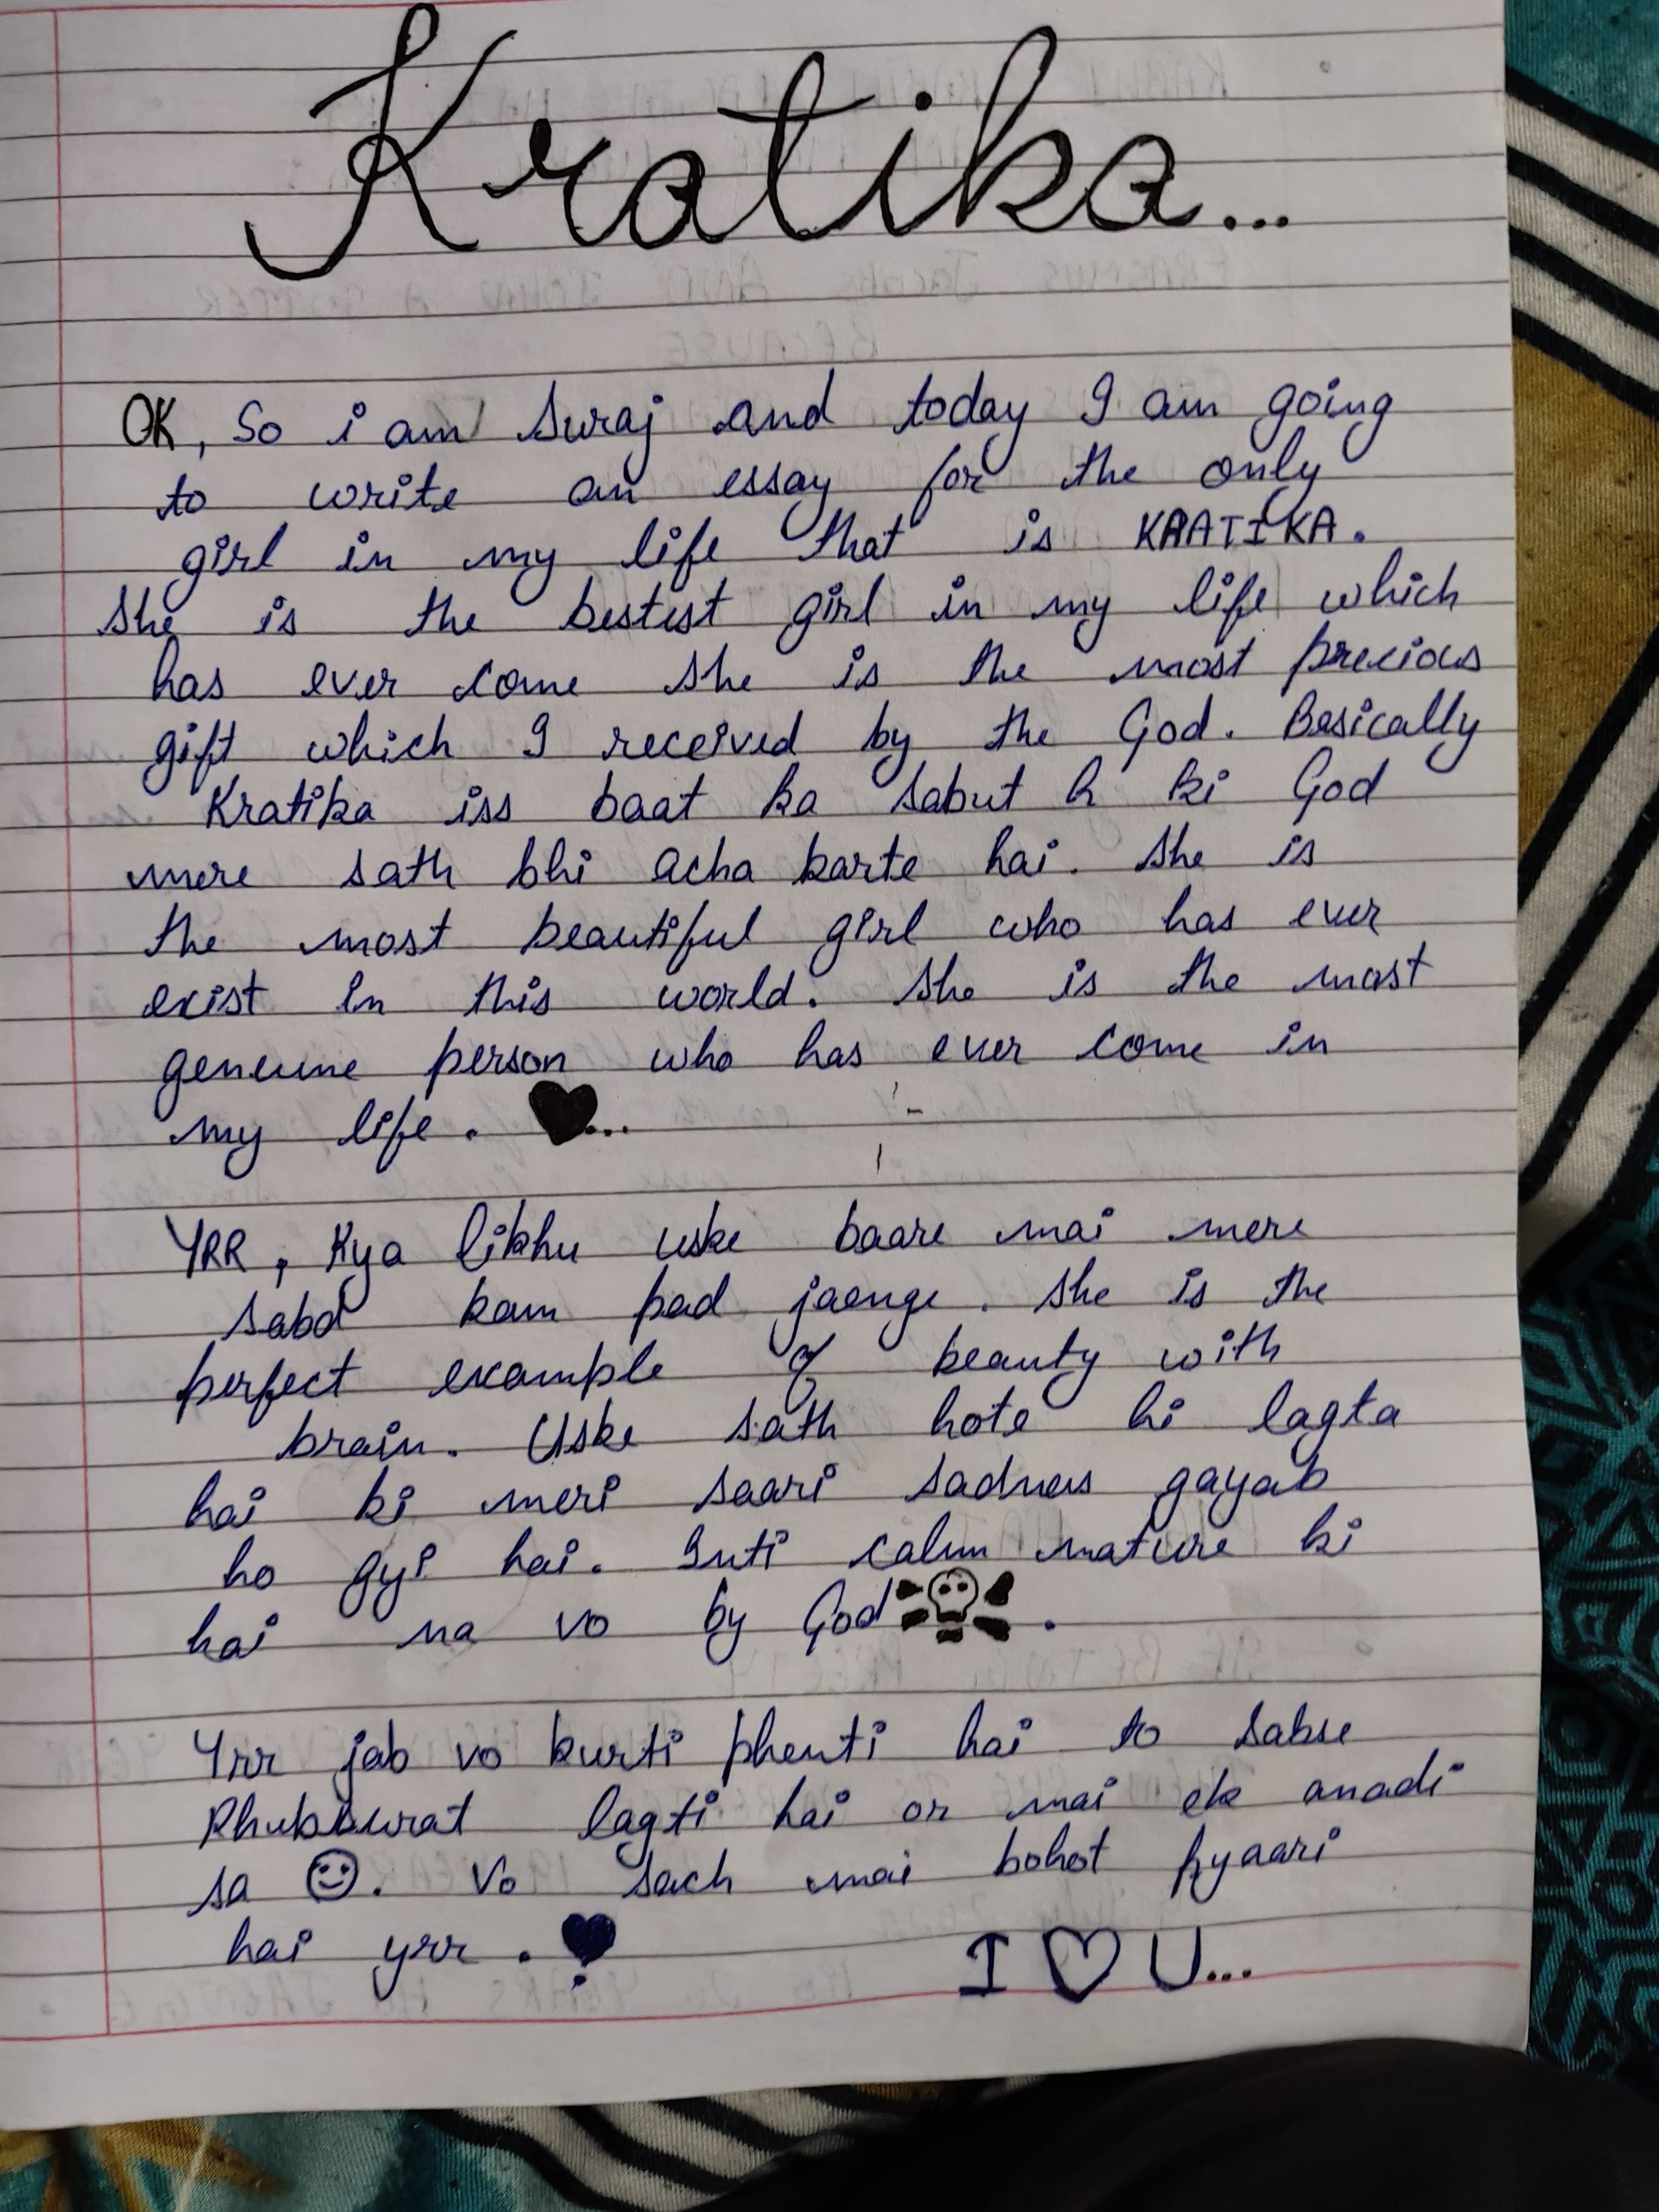 Kratika...
OK, So i am Suraj and today I am going
to write an essay for the only
girl in my life that is KRATIKA.
She is the bestest girl in my life which
has ever come she is the most precious
gift which I received by the God. Besically
Kratika iss baat ka sabut h ki God
mere sath bhi acha karte hai. She is
the most beautiful girl who has ever
exist in this world. She is the most
geneune person who has ever come in
my life. ♥...
YRR, Kya likhu uske baare mai mere
sabd kam pad jaenge. She is the
perfect example of beauty with
brain. Uske sath hote hi lagta
hai ki meri saari sadness gayab
ho gyi hai. Inti calm nature ki
hai na vo by God.
Yrr jab vo kurti phenti hai to sabse
khubsurat lagti hai or mai ek anadi
sa ☺. Vo sach mai bohot pyaari
hai yrr. ♥
I ♡ U...